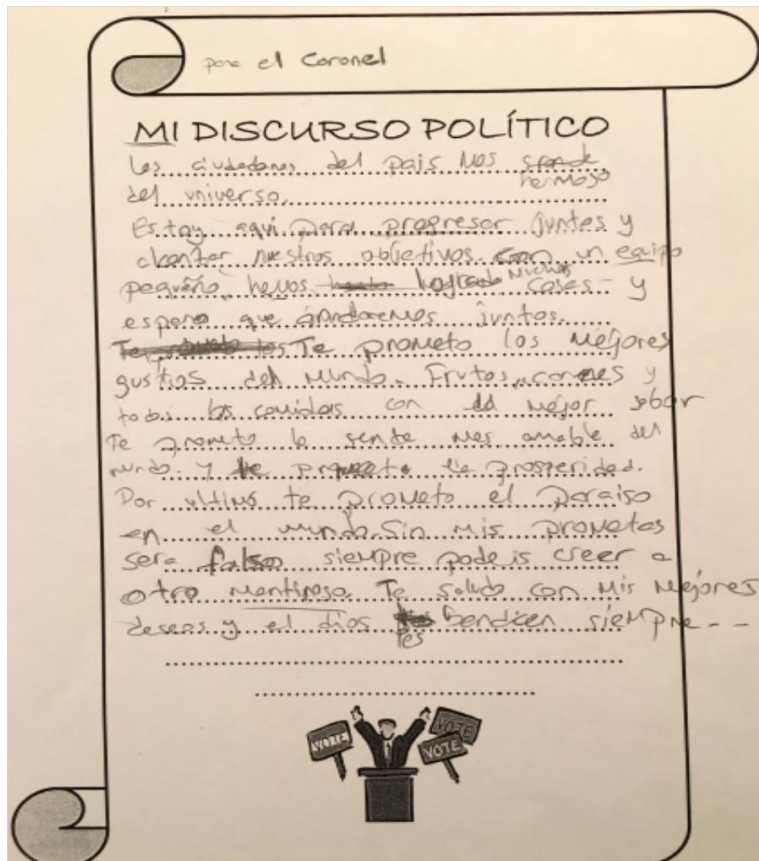 para el Coronel
MI DISCURSO POLÍTICO
Los ciudadanos del pais mas grande
hermoso
del universo.
Estoy aquí para progresar juntos y
alcantar nuestros objetivos con un equipo
pequeño hemos logrado muchas cosas y
espero que juntos.
Te prometo los mejores
gustios del mundo. Frutas, carnes y
todas las comidas con el mejor sobor
Te prometo la gente mas amable del
mundo. y te prometo la prosperidad.
Por ultimo te prometo el paraiso
en el mundo. Sin mis prometas
sera falso siempre podeis creer a
otro mentiroso. Te saludo con mis mejores
deseos y el dios les bendicen siempre--
VOTE
VOTE
VOTE